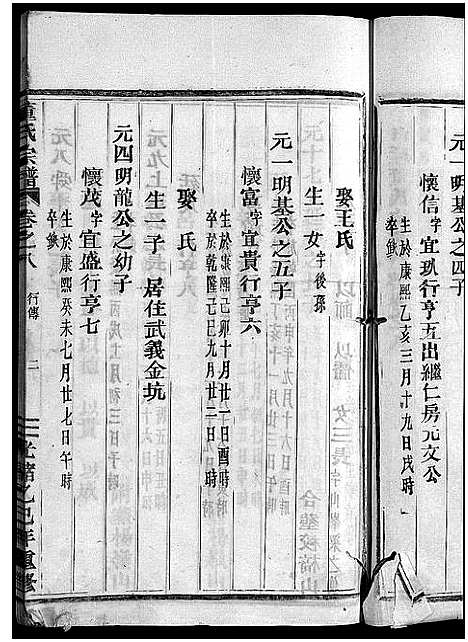 元一明基公之四子
懷信字宜玑行亨五出繼仁房元文公
生於康熙乙亥三月十九日戌時
卒缺
娶王氏
生一女字後孫
元一明基公之五子
懷富字宜貴行亨六
生於康熙己卯十月廿一日酉時
卒於乾隆己巳九月廿二日
娶 氏
生一子 居住武義金坑
元四明龍公之幼子
懷茂字宜盛行亨七
生於康熙癸未七月廿七日午時
卒缺
童氏宗譜 卷之八 行傳 二 光緒乙巳年重修